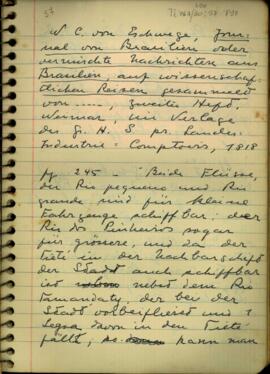 57
W. C. von Eschwege, Jour-
nal von Brasilien oder
vermischte Nachrichten aus
Brasilien, auf wissenschaf-
tlichen Reisen gesammelt
von ......, Zweites Heft,
Weimar, im Verlage
des G. H. S. pr. Landes-
Industrie-Comptoirs, 1818
pg. 245 - "Beide Flüsse,
der Rio pequeno und Rio
grande sind für kleine
Fahrzeuge schiffbar; der
Rio dos Pinheiros sogar
für grössere, und da der
Tieté in der Nachbarschaft
der Stadt auch schiffbar
ist nebst dem Rio
Tamandaty, der bei der
Stadt vorbeifliesst und 1
Legoa davon in den Tieté
fällt, so kann man